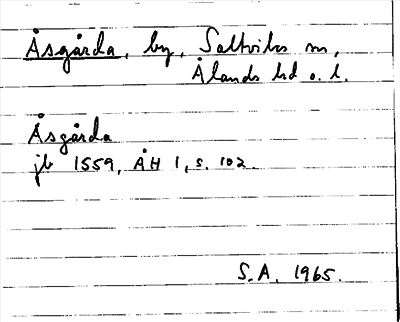 Åsgårda, by, Saltviks sn,
Ålands hd o. l.
Åsgårda
jb 1559, ÅH 1, s. 102.
S.A. 1965.